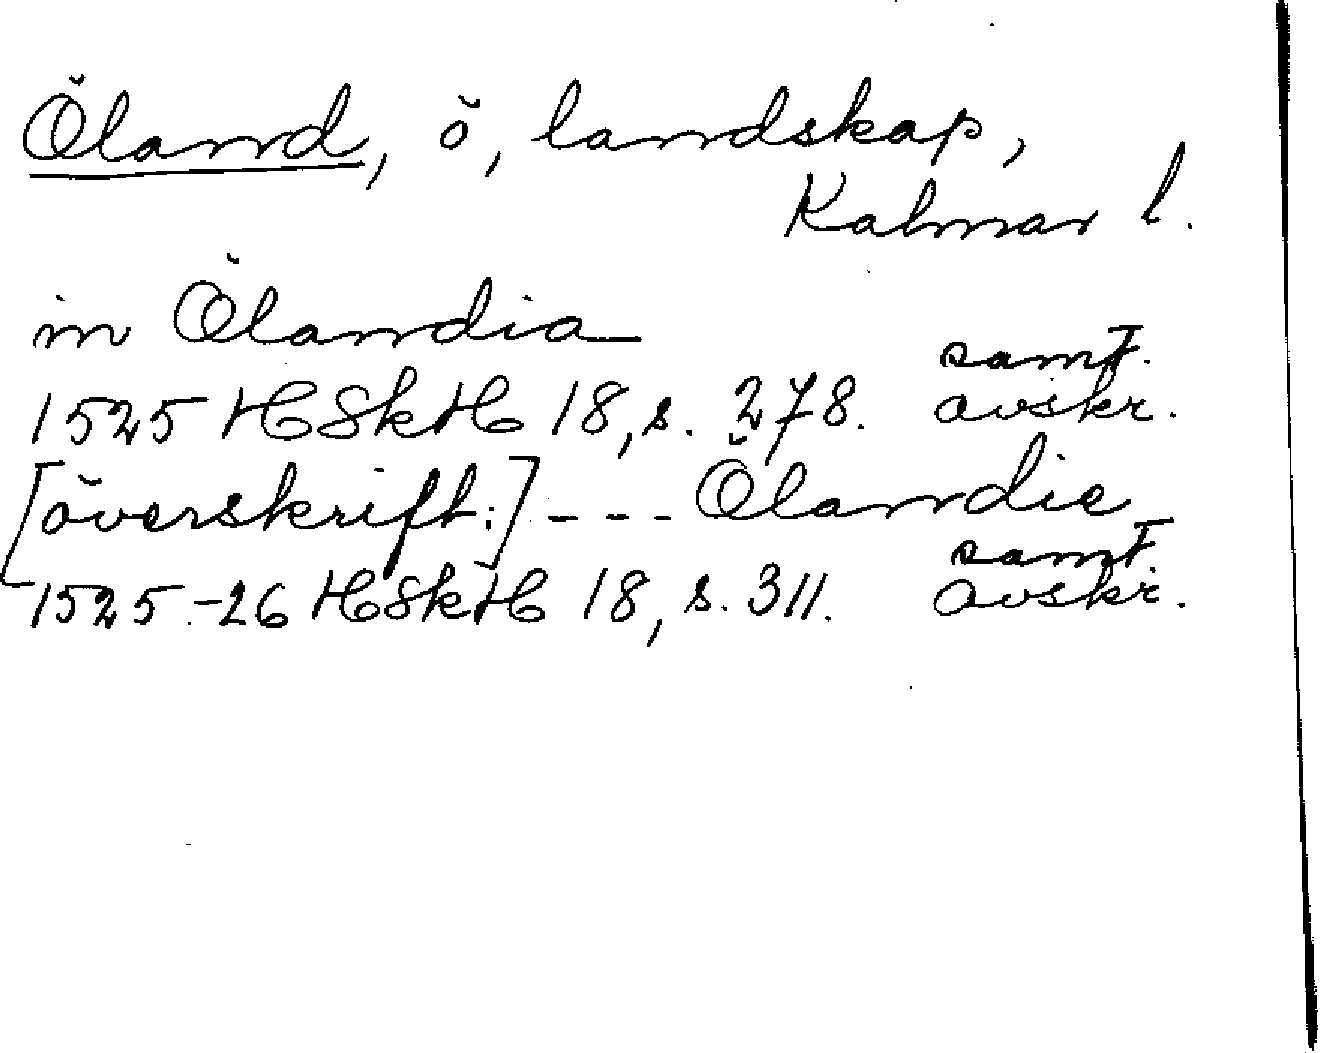 Öland, ö, landskap,
Kalmar l.
in Ölandia
samt.
1525 HSkH 18, s. 278. avskr.
[överskrift:] --- Ölandie
samt.
1525-26 HSkH 18, s. 311. avskr.